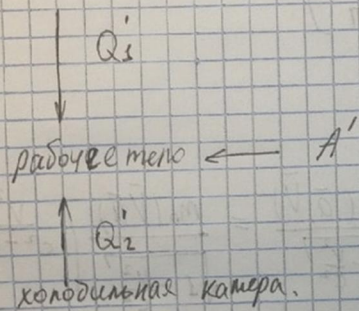 Q'1
рабочее тело
A'
Q'2
холодильная камера.